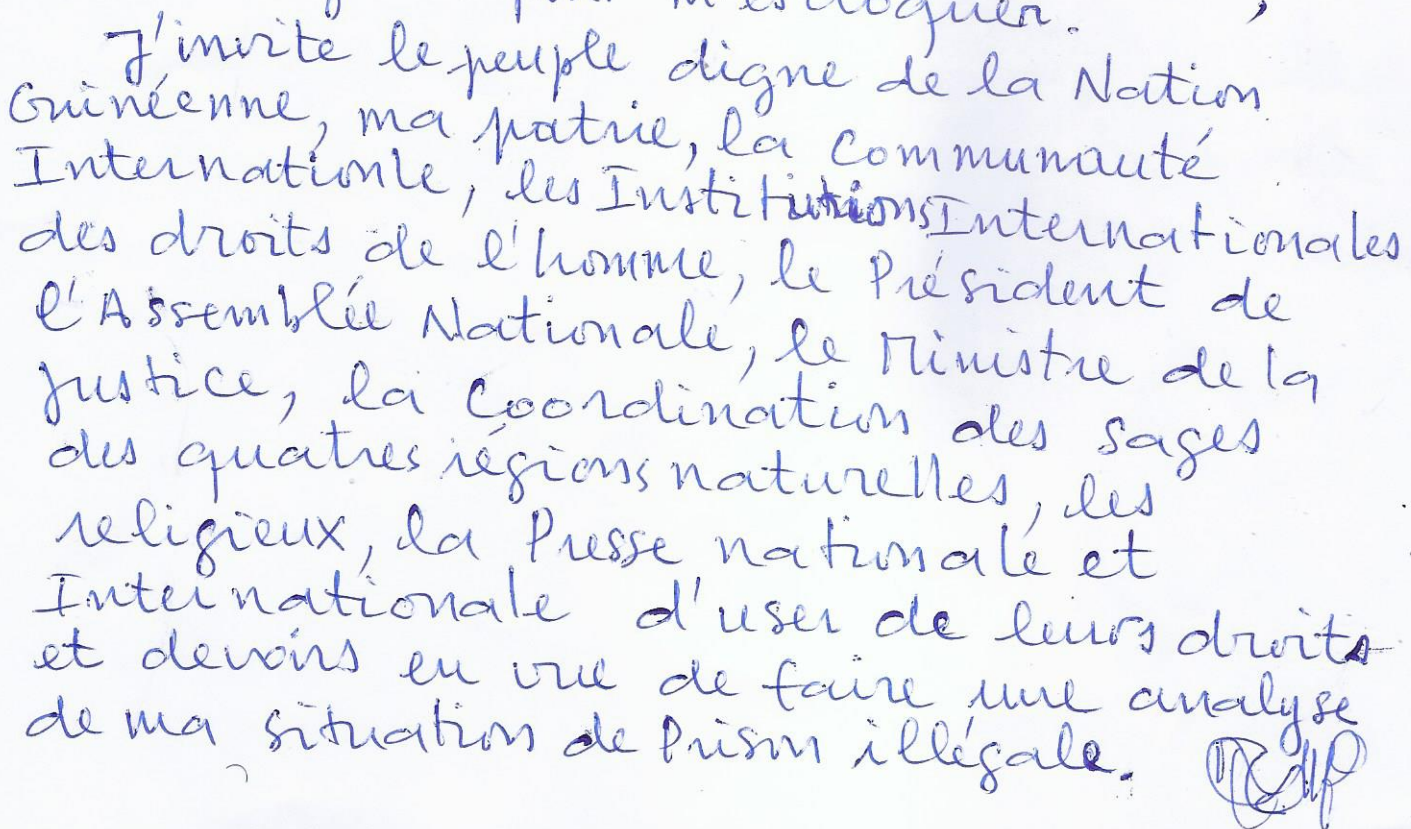 J'invite le peuple digne de la Nation
Guinéenne, ma patrie, la Communauté
Internationle, les Institutions Internationales
des droits de l'homme, le Président de
l'Assemblée Nationale, le Ministre de la
Justice, la Coordination des sages
des quatres régions naturelles, les
religieux, la Presse nationale et
Internationale d'user de leurs droits
et devoirs en vue de faire une analyse
de ma situation de Prison illégale.